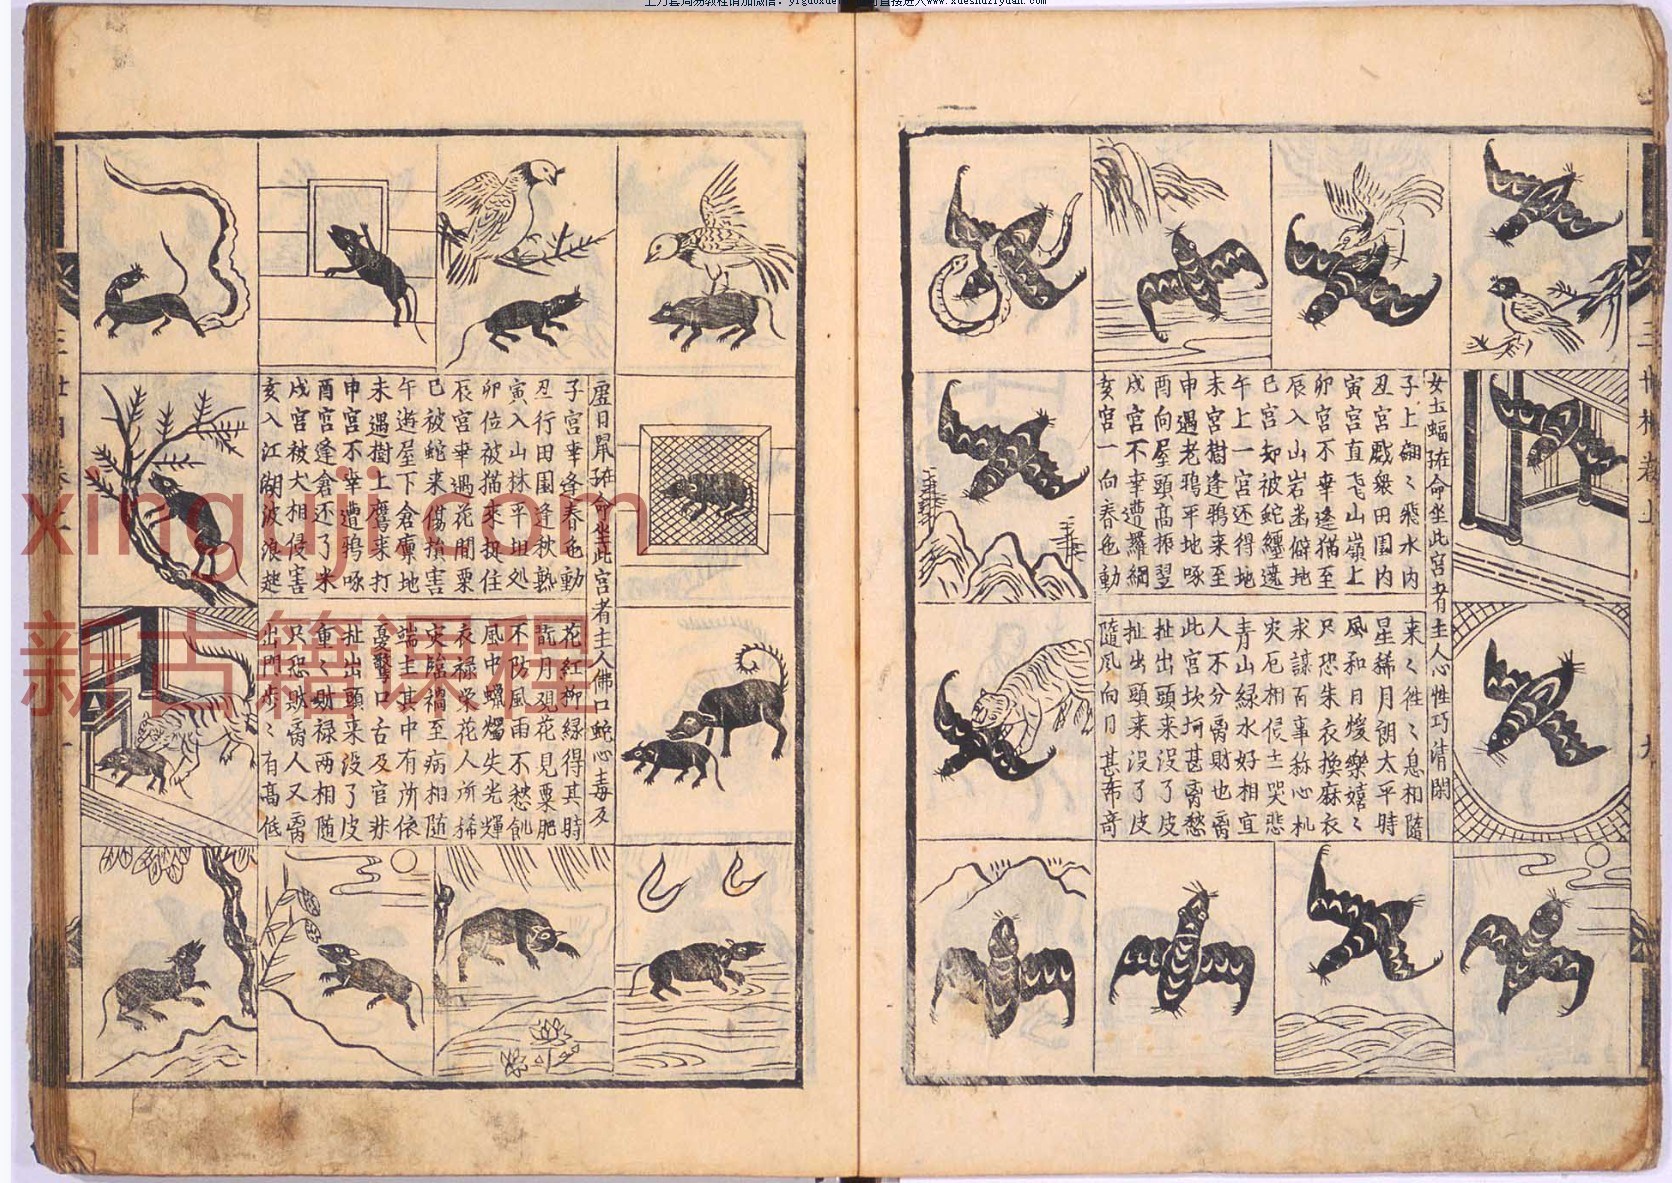 女土蝠班命坐此宮者主人心性巧清閑
子上翩〻飛水内
丑宮戯衆田園内
寅宮直飞山嶺上
卯宮不幸逢猫至
辰入山岩幽僻地
巳宮却被蛇纏遶
午上一宮还得地
未宮樹逢鴉来至
申遇老鴉平地啄
酉向屋頭高振翌
戌宮不幸遭羅網
亥宮一向春色動
来〻徃〻息相隨
星稀月朗太平時
風和日煖樂嬉〻
只恐朱衣換麻衣
求謀百事称心札
灾厄相侵主哭悲
青山緑水好相宜
人不分啇財也啇
此宮坎坷甚啇愁
扯出頭来没了皮
扯出頭来没了皮
隨風向日甚希奇
虚日鼠班命坐此宮者主人佛口蛇心毒及
子宮幸逢春色動
丑行田園逢秋熟
寅入山林平坦処
卯位被猫来捉住
辰宮幸遇花間粟
巳被蛇来傷損害
午逰屋下倉廪地
未遇樹上鷹来打
申宮不幸遭鴉啄
酉宮逢倉还了米
戌宮被犬相侵害
亥入江湖波浪趂
花紅柳緑得其時
翫月观花見粟肥
不防風雨不愁飢
風中蠟燭失光輝
衣禄栄花人所稀
灾臨禍至病相隨
端主其中有所依
憂驚口舌及官非
扯出頭来没了皮
重〻財禄两相随
只恐財啇人又啇
出門步〻有高低
三世相卷上
九
xinguji.com
新古籍课程